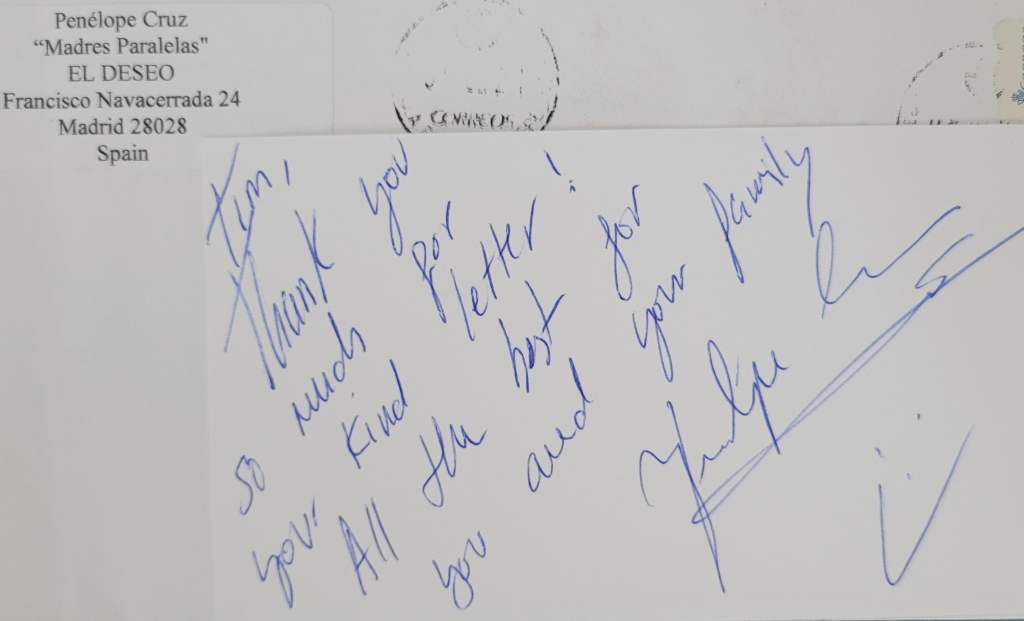 Penélope Cruz
“Madres Paralelas"
EL DESEO
Francisco Navacerrada 24
Madrid 28028
Spain
CORREOS
Tim,
Thank you
so much for
your kind letter!
All the best for
you and your family
Penélope Cruz